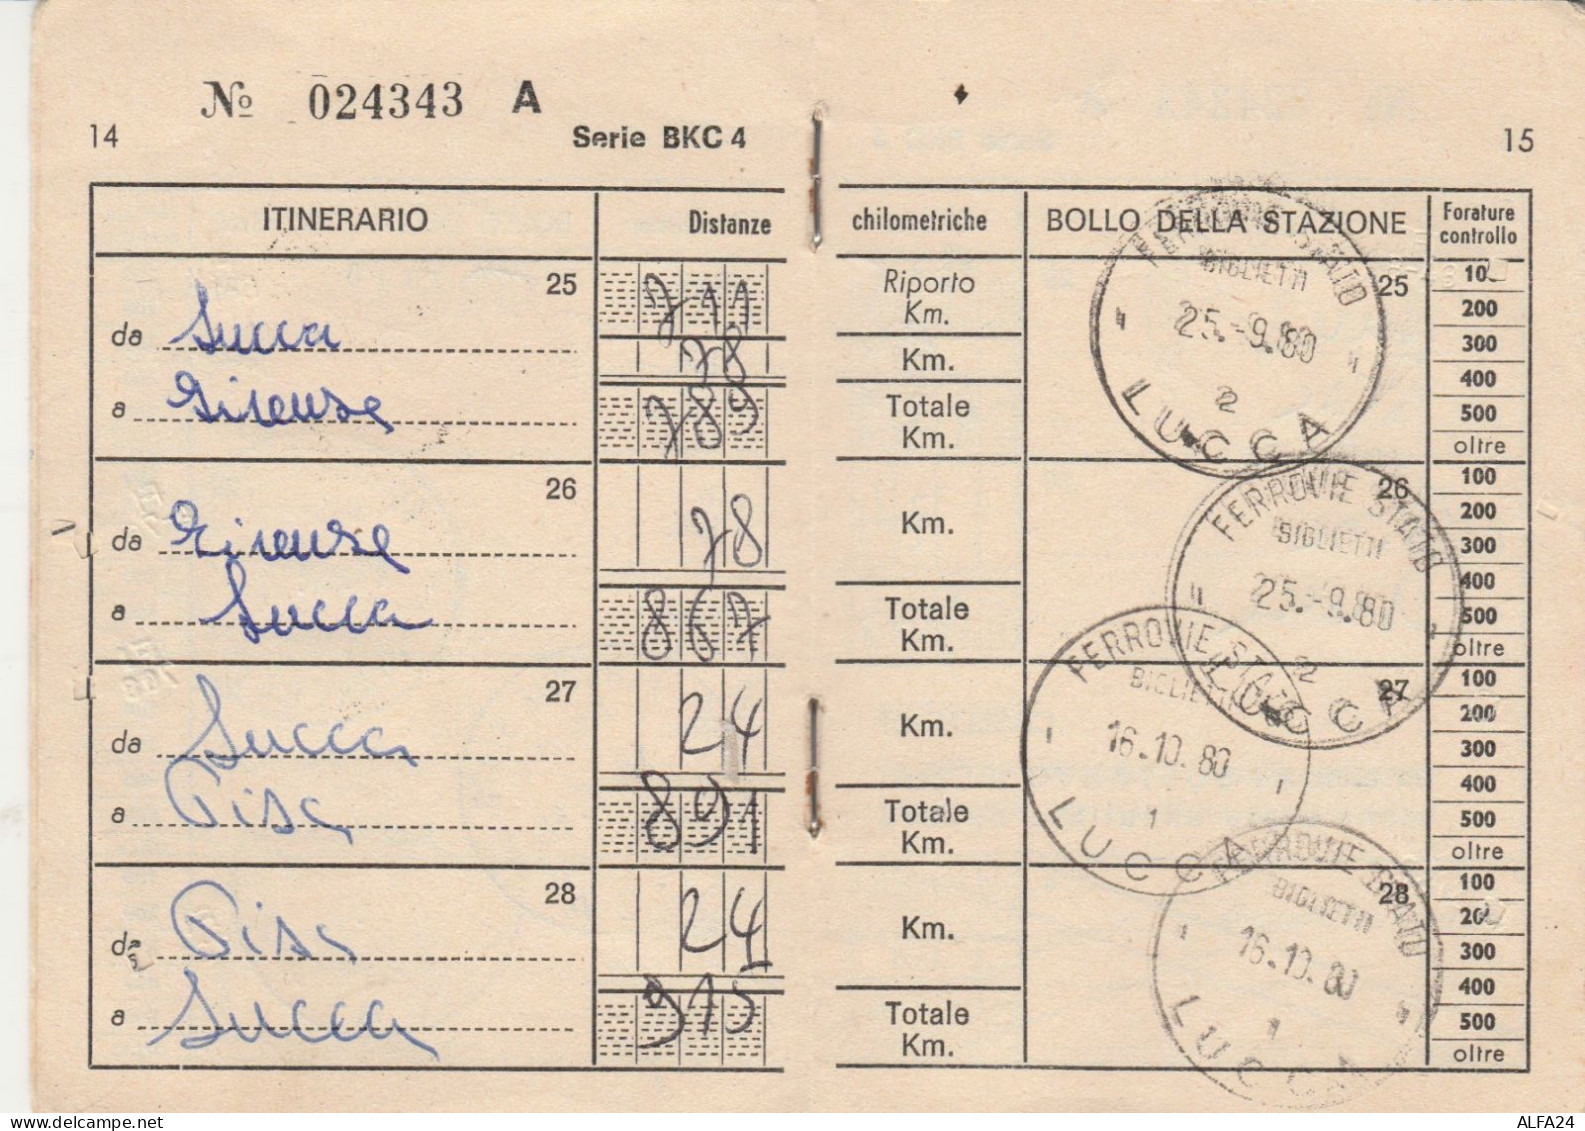 No 024343 A
14
Serie BKC 4
15
ITINERARIO
Distanze
chilometriche
BOLLO DELLA STAZIONE
Forature
controllo
25
da Lucca
a Firenze
711
78
789
Riporto
Km.
Km.
Totale
Km.
25
FERROVIE STATO
BIGLIETTI
25.-9.80
2
LUCCA
100
200
300
400
500
oltre
26
da Firenze
a Lucca
78
867
Km.
Totale
Km.
26
FERROVIE STATO
BIGLIETTI
25.-9.80
2
LUCCA
100
200
300
400
500
oltre
27
da Lucca
a Pisa
24
891
Km.
Totale
Km.
27
FERROVIE STATO
BIGLIETTI
16.10.80
1
LUCCA
100
200
300
400
500
oltre
28
da Pisa
a Lucca
24
915
Km.
Totale
Km.
28
FERROVIE STATO
BIGLIETTI
16.10.80
1
LUCCA
100
200
300
400
500
oltre
delcampe.net
ALFA24